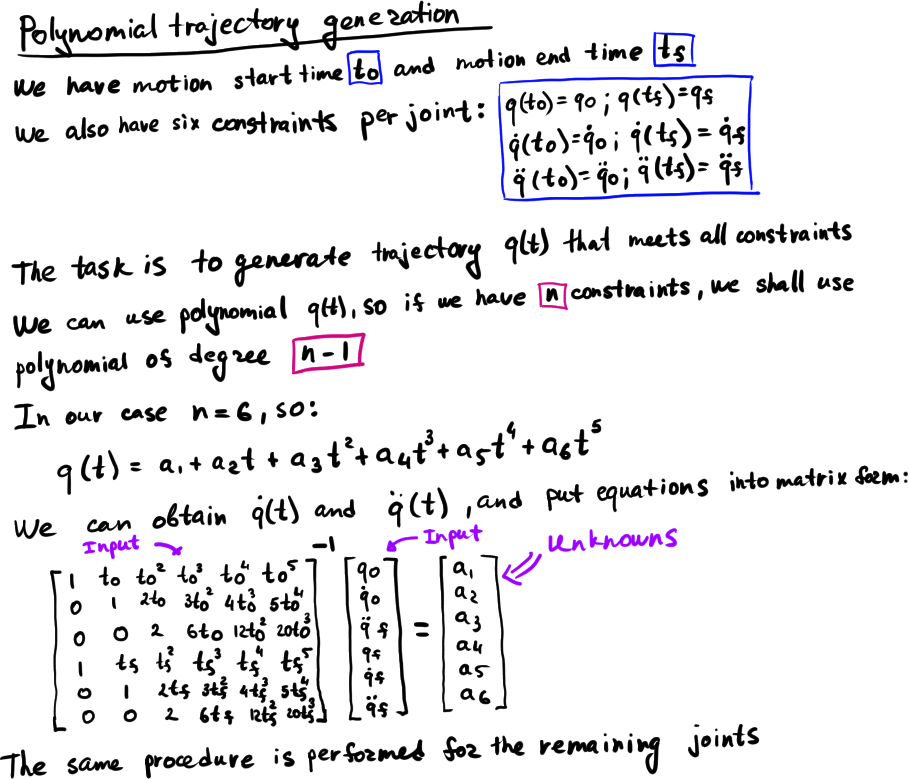 Polynomial trajectory generation
We have motion start time t₀ and motion end time tf
We also have six constraints per joint:
q(t₀)=q₀ ; q(tf)=qf
q̇(t₀)=q̇₀; q̇(tf)= q̇f
q̈(t₀)=q̈₀; q̈(tf)= q̈f
The task is to generate trajectory q(t) that meets all constraints
We can use polynomial q(t), so if we have n constraints, we shall use
polynomial of degree n-1
In our case n=6, so:
q(t) = a₁ + a₂t + a₃t² + a₄t³ + a₅t⁴ + a₆t⁵
We can obtain q̇(t) and q̈(t), and put equations into matrix form:
Input Input Unknowns
1 t₀ t₀² t₀³ t₀⁴ t₀⁵ -1 q₀ a₁
0 1 2t₀ 3t₀² 4t₀³ 5t₀⁴ q̇₀ a₂
0 0 2 6t₀ 12t₀² 20t₀³ q̈f = a₃
1 tf tf² tf³ tf⁴ tf⁵ qf a₄
0 1 2tf 3tf² 4tf³ 5tf⁴ q̇f a₅
0 0 2 6tf 12tf² 20tf³ q̈f a₆
The same procedure is performed for the remaining joints